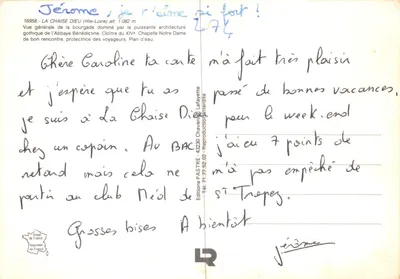 Jérome, je t'aime si fort !
274
16958 - LA CHAISE DIEU (Hte-Loire) alt. 1 082 m
Vue générale de la bourgade dominé par la puissante architecture
gothique de l'Abbaye Bénédictine. Cloître du XIVe. Chapelle Notre Dame
de bon rencontre, protectrice des voyageurs. Plan d'eau.
Chère Caroline ta carte m'a fait très plaisir
et j'espère que tu as passé de bonnes vacances,
je suis à La Chaise Dieu pour le week-end
chez un copain. Au BAC j'ai eu 7 points de
retard mais cela ne m'a pas empêché de
partir au club Méd de St Tropez.
Grosses bises A bientôt
jérôme
Editions PASTRE - 43230 Chavaniac Lafayette
Tél. 71.77.52.02 - Reproduction interdite